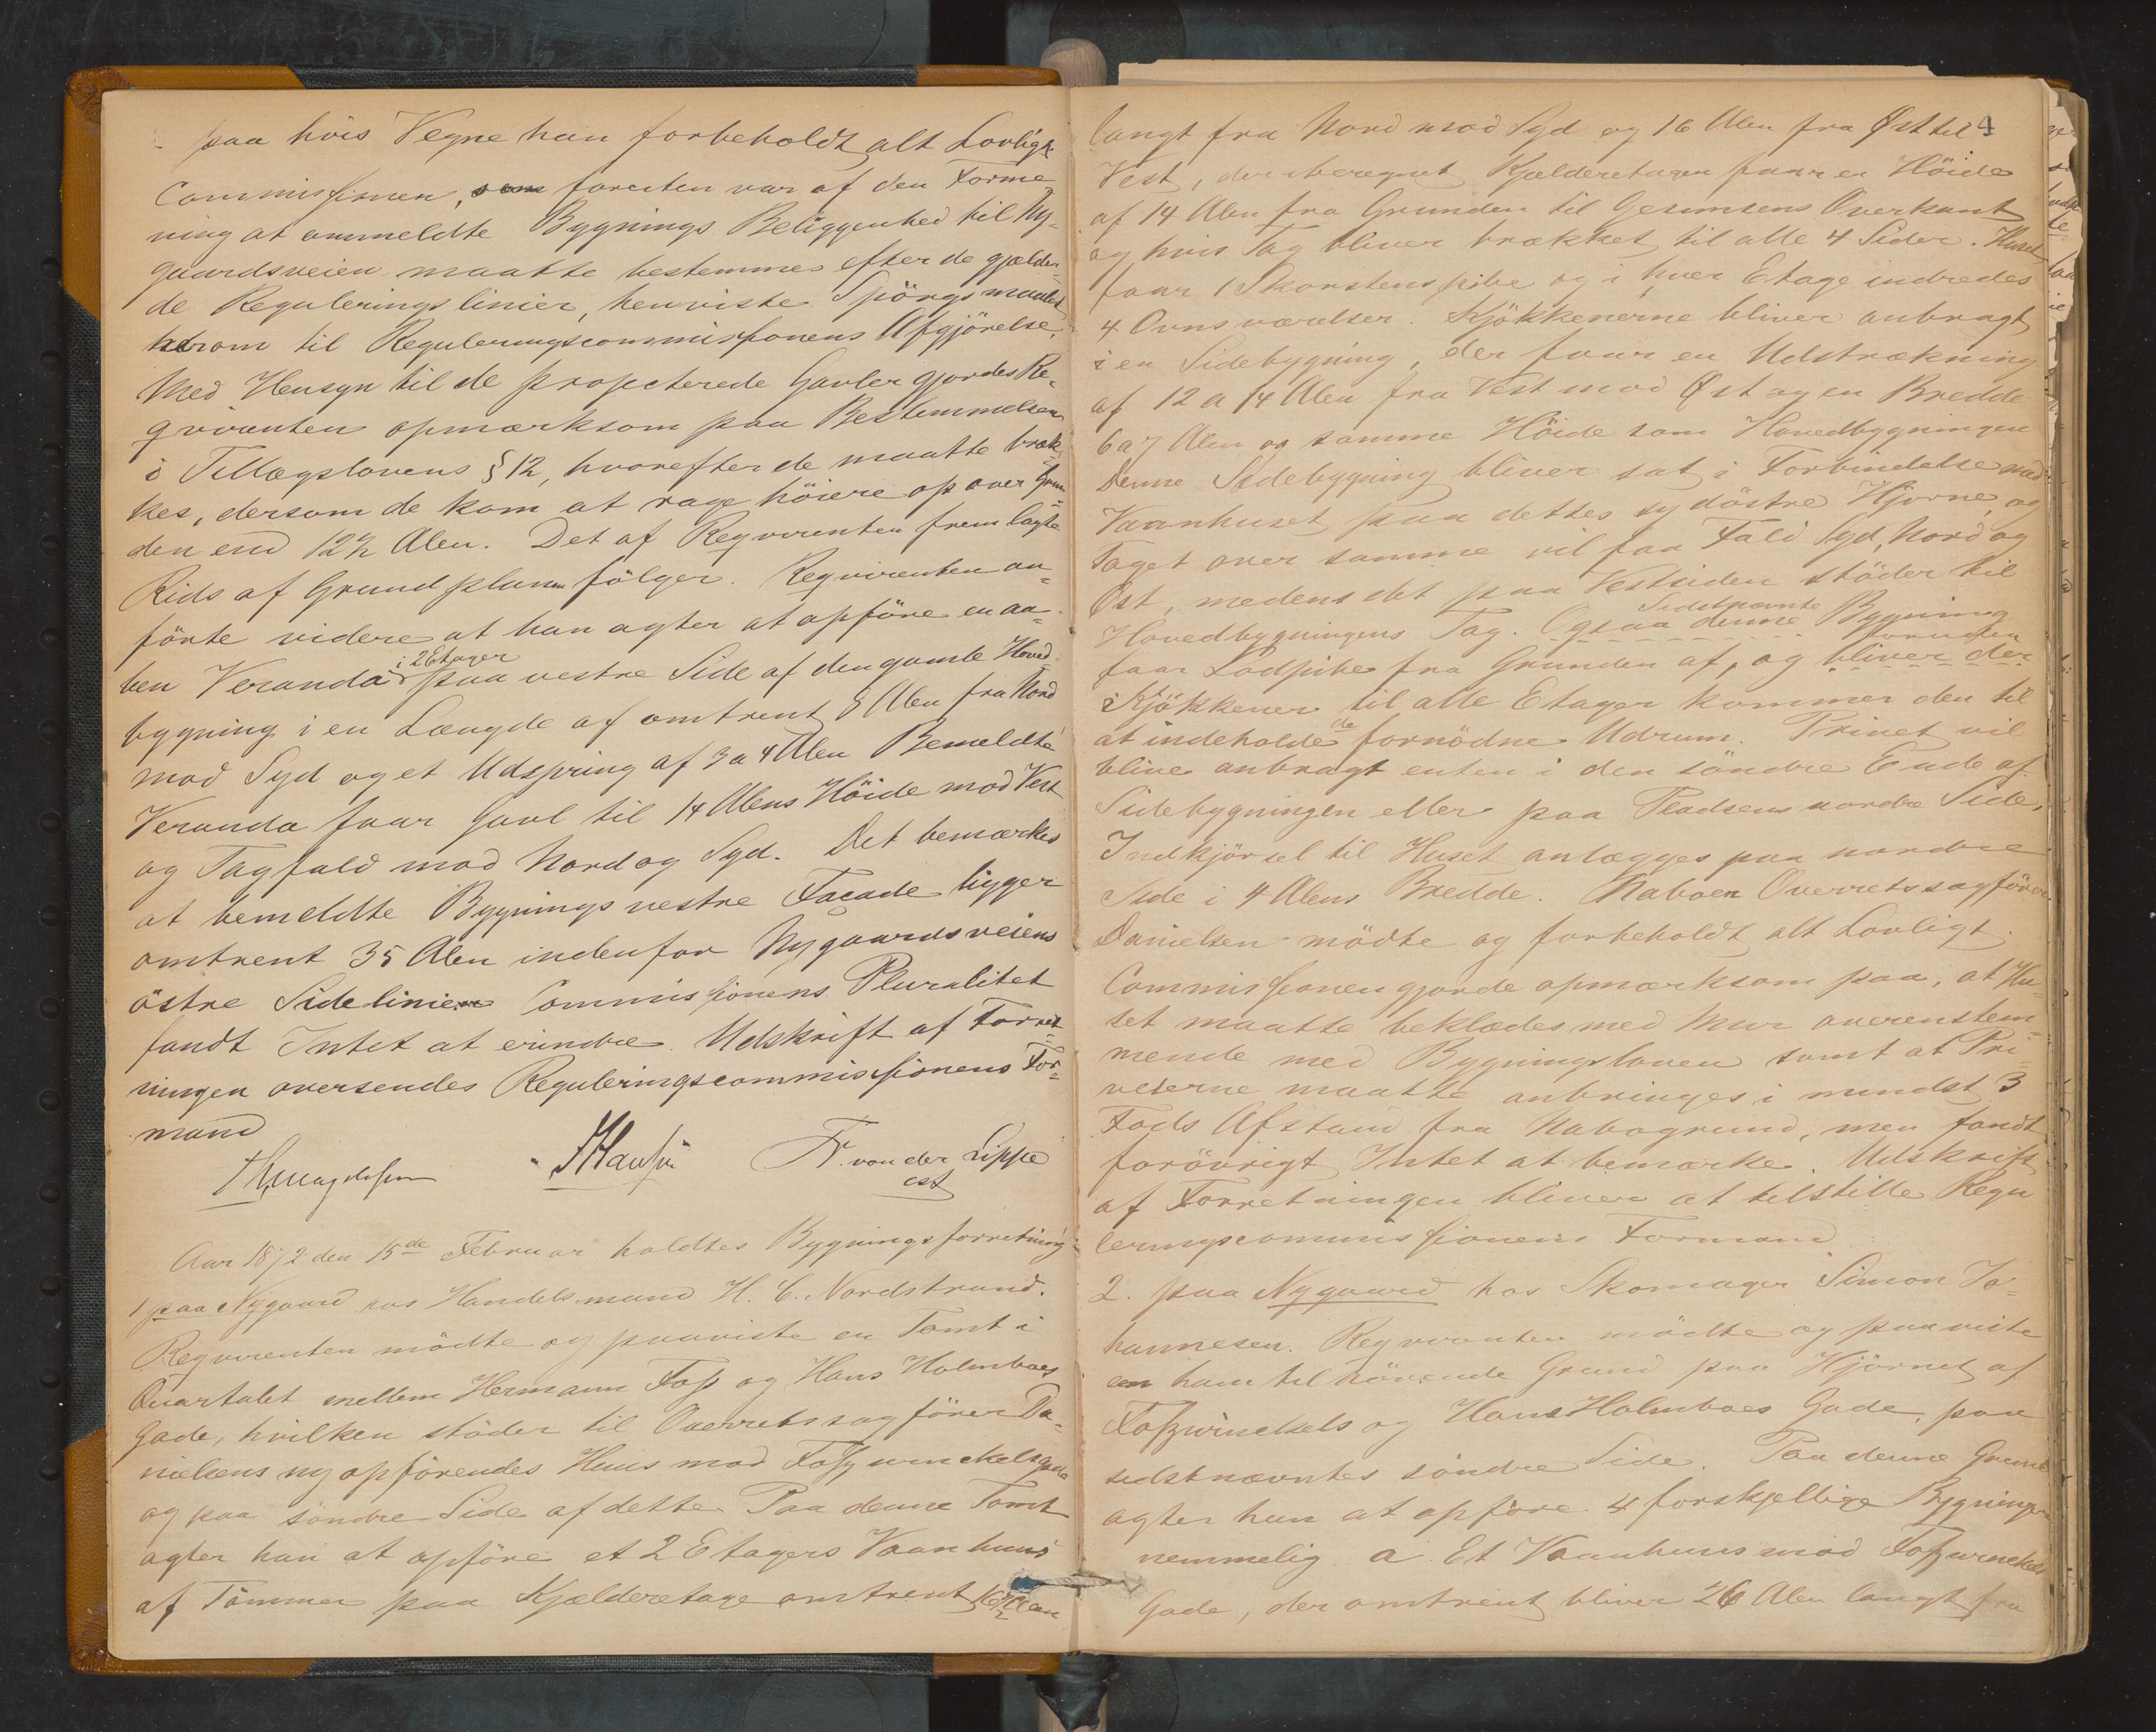 paa hvis Vegne han forbeholdt alt Lovligt.
Commissionen, som foresten var af den Forme-
ning at anmeldte Bygnings Beliggenhed til Ny-
gaardsveien maatte bestemmes efter de gjælden-
de Reguleringslinier, henviste Spörgsmaalet
herom til Reguleringscommissionens Afgjörelse.
Med Hensyn til de projecterede Gavler gjordes Re-
qvirenten opmærksom paa Bestemmelsen
i Tillægslovens § 12, hvorefter de maatte bræk-
kes, dersom de kom at rage höiere op over Grun-
den end 12½ Alen. Det af Reqvirenten fremlagte
Rids af Grundplanen fölger. Reqvirenten an-
förte videre at han agter at opföre en aa-
ben Veranda i 2 Etager paa vestre Side af den gamle Hoved-
bygning i en Længde af omtrent 8 Alen fra Nord
mod Syd og et Udspring af 3 a 4 Alen Bemeldte
Veranda faar Gavl til 14 Alens Höide mod Vest
og Tagfald mod Nord og Syd. Det bemærkes
at bemeldte Bygnings vestre Facade ligger
omtrent 35 Alen indenfor Nygaardsveiens
östre Sidelinie. Commissionens Pluralitet
fandt Intet at erindre. Udskrift af Forret-
ningen oversendes Reguleringscommissionens For-
mand
JHansen Fr. von der Lippe
cst
Aar 1872 den 15de Februar holdtes Bygningsforretning
1 paa Nygaard hos Handelsmand H. C. Nordstrand.
Reqvirenten mödte og paaviste en Tomt i
Quartalet mellem Hermann Foss og Hans Holmboes
Gade, hvilken stöder til Overretssagförer Da-
nielsens nyopförendes Huus mod Fosswinckelsgade
og paa söndre Side af dette. Paa denne Tomt
agter han at opföre et 2 Etagers Vaanhuus
af Tömmer paa Kjælderetage omtrent 16½ Alen
4
langt fra Nord mod Syd og 16 Alen fra Öst til
Vest, der iberegnet Kjælderetagen faar en Höide
af 14 Alen fra Grunden til Gesimsens Overkant
og hvis Tag bliver brækket til alle 4 Sider. Huset
faar 1 Skorstenspibe og i hver Etage indredes
4 Ovnsværelser. Kjökkenerne bliver anbragt
i en Sidebygning, der faar en Udstrækning
af 12 a 14 Alen fra Vest mod Öst og en Bredde
6 a 7 Alen og samme Höide som Hovedbygningen
Denne Sidebygning bliver sat i Forbindelse med
Vaanhuset paa dettes sydöstre Hjörne, og
Taget over samme vil faa Fald Syd, Nord og
Öst, medens det paa Vestsiden stöder til
Hovedbygningens Tag. Ogsaa denne Sidstnævnte Bygning
faar Lodpibe fra Grunden af, og bliver der foruden
Kjökkener til alle Etager kommer den til
at indeholde de fornödne Udrum. Privet vil
blive anbragt enten i den söndre Ende af
Sidebygningen eller paa Pladsens nordre Side.
Indkjörsel til Huset anlægges paa nordre
Side i 4 Alens Bredde. Naboen Overretssagförer
Danielsen mödte og forbeholdt alt Lovligt.
Commissionen gjorde opmærksom paa, at Hu-
set maatte beklædes med Mur overenstem-
mende med Bygningsloven samt at Pri-
veterne maatte anbringes i mindst 3
Fods Afstand fra Nabogrund, men fandt
forövrigt Intet at bemærke. Udskrift
af Forretningen bliver at tilstille Regu
leringscommissionens Formand
2. paa Nygaard hos Skomager Simon Jo-
hannesen. Reqvirenten mödte og paaviste
en ham tilhörende Grund paa Hjörnet af
Fosswinckels og Hans Holmboes Gade, paa
sidstnævntes söndre Side. Paa denne Grund
agter han at opföre 4 forskjellige Bygninger
nemmelig a. Et Vaanhuus mod Fosswinckels
Gade, der omtrent bliver 26 Alen langt fra